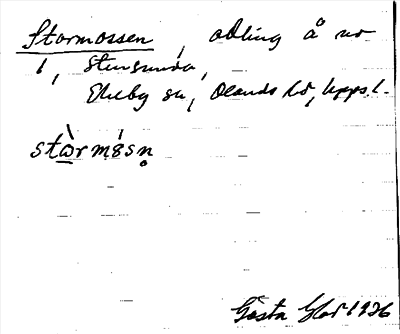 Stormossen, odling å nr
1, Stensunda,
Ekeby sn, Olands hd, Upps. l.
stòrmósn̥
Gösta 1926